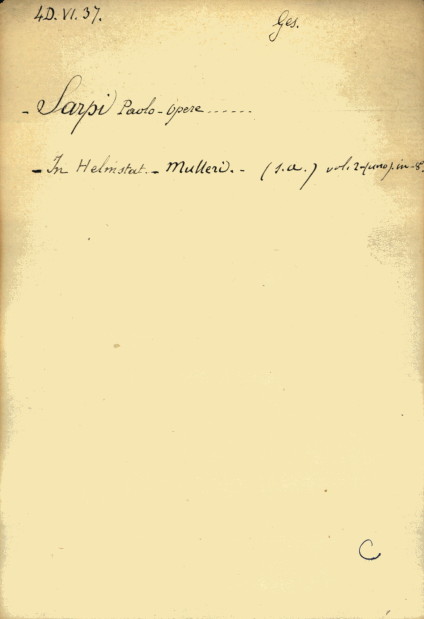 4D. VI. 37.
Ges.
- Sarpi Paolo - Opere ......
- In Helmstat. - Mulleri. - (s.a.) vol. 2-(uno). in-8.
C